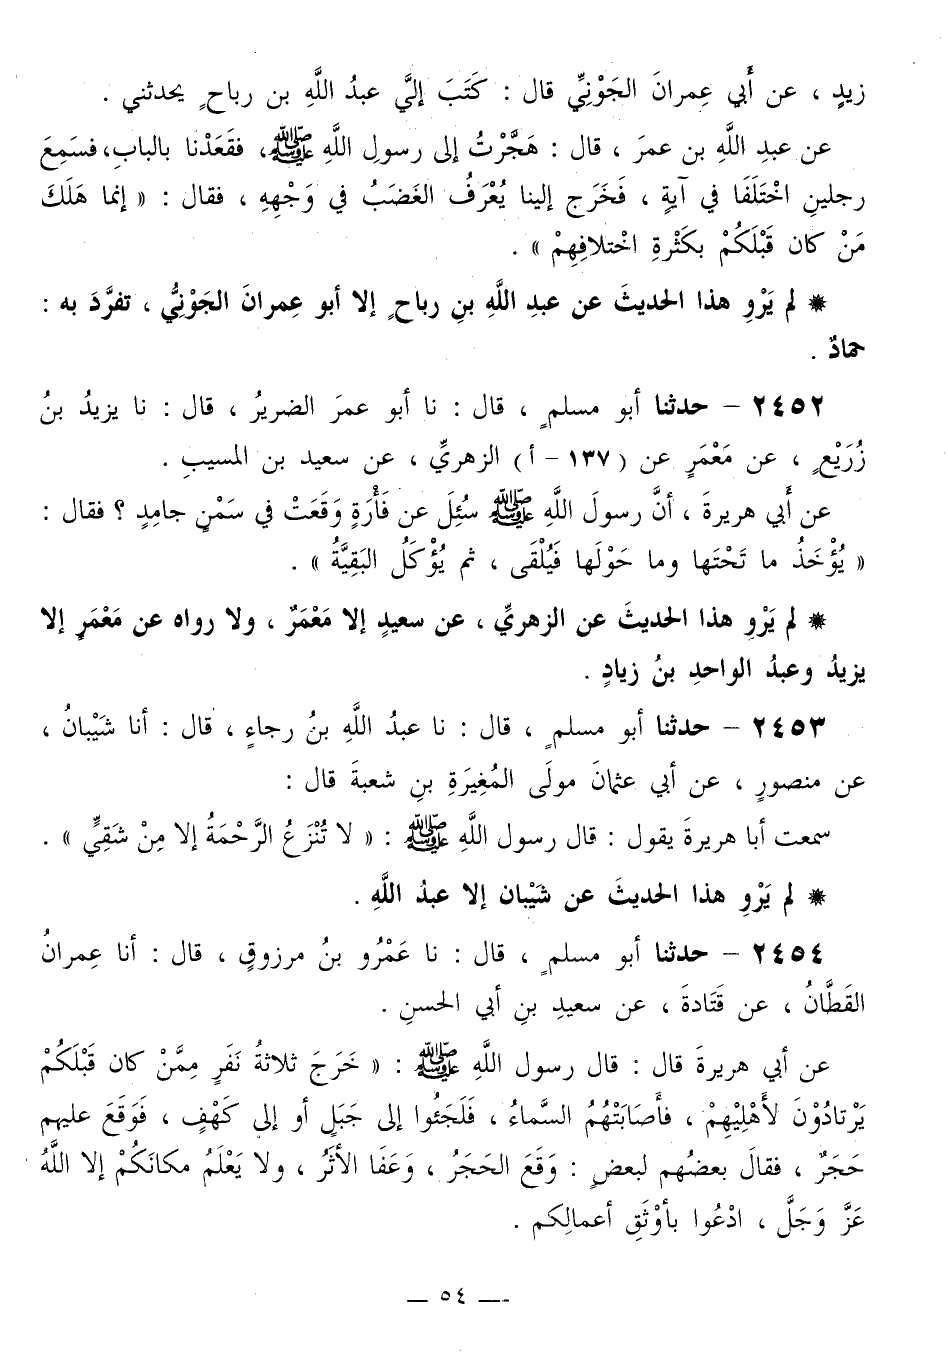 زيدٍ ، عن أَبي عِمرانَ الجَوْنِيِّ قال : كَتَبَ إِليَّ عبدُ اللَّهِ بن رباحٍ يحدثني .
عن عبدِ اللَّهِ بن عمرَ ، قال : هَجَّرْتُ إلى رسولِ اللَّهِ ﷺ، فقَعَدْنا بالبابِ، فسَمِعَ
رجلينِ اخْتَلَفَا في آيةٍ ، فَخَرَج إلينا يُعْرَفُ الغَضَبُ في وَجْهِهِ ، فقال : « إنما هَلَكَ
مَنْ كان قَبْلَكُمْ بكَثْرةِ اخْتلافِهِمْ » .
* لم يَرْوِ هذا الحديثَ عن عبدِ اللَّهِ بنِ رباحٍ إلا أبو عِمرانَ الجَوْنِيُّ ، تفرَّدَ به :
حمادٌ .
٢٤٥٢ – حدثنا أبو مسلمٍ ، قال : نا أبو عمرَ الضريرُ ، قال : نا يزيدُ بنُ
زُرَيْعٍ ، عن مَعْمَرٍ عن ( ١٣٧ – أ ) الزهريِّ ، عن سعيد بن المسيبِ .
عن أَبي هريرةَ ، أنَّ رسولَ اللَّهِ ﷺ سُئِلَ عن فَأْرَةٍ وَقَعَتْ في سَمْنٍ جامِدٍ ؟ فقال :
« يُؤْخَذُ ما تَحْتَها وما حَوْلَها فَيُلْقَى ، ثم يُؤْكَلُ البَقِيَّةُ » .
* لم يَرْوِ هذا الحديثَ عن الزهريِّ ، عن سعيدٍ إلا مَعْمَرٌ ، ولا رواه عن مَعْمَرٍ إلا
يزيدُ وعبدُ الواحدِ بنُ زيادٍ .
٢٤٥٣ – حدثنا أبو مسلمٍ ، قال : نا عبدُ اللَّهِ بنُ رجاءٍ ، قال : أنا شَيْبانُ ،
عن منصورٍ ، عن أبي عثمانَ مولَى المُغِيَرةِ بنِ شعبةَ قال :
سمعت أبا هريرةَ يقول : قال رسول اللَّهِ ﷺ : « لا تُنْزَعُ الرَّحْمَةُ إلا مِنْ شَقِيٍّ » .
* لم يَرْوِ هذا الحديثَ عن شَيْبان إلا عبدُ اللَّهِ .
٢٤٥٤ – حدثنا أبو مسلمٍ ، قال : نا عَمْرُو بنُ مرزوقٍ ، قال : أنا عِمرانُ
القَطَّانُ ، عن قَتَادةَ ، عن سعيدِ بنِ أبي الحسنِ .
عن أبي هريرةَ قال : قال رسول اللَّهِ ﷺ : « خَرَجَ ثلاثةُ نَفَرٍ مِمَّنْ كان قَبْلَكُمْ
يَرْتادُوْنَ لأَهْلِيْهِمْ ، فأَصَابَتْهُمُ السَّماءُ ، فَلَجَئُوا إلى جَبَلٍ أو إلى كَهْفٍ ، فَوَقَعَ عليهم
حَجَرٌ ، فقالَ بعضُهم لبعضٍ : وَقَعَ الحَجَرُ ، وَعَفَا الأثَرُ ، ولا يَعْلَمُ مكانَكُمْ إلا اللَّهُ
عَزَّ وَجَلَّ ، ادْعُوا بأوْثَقِ أعمالِكم .
— ٥٤ —